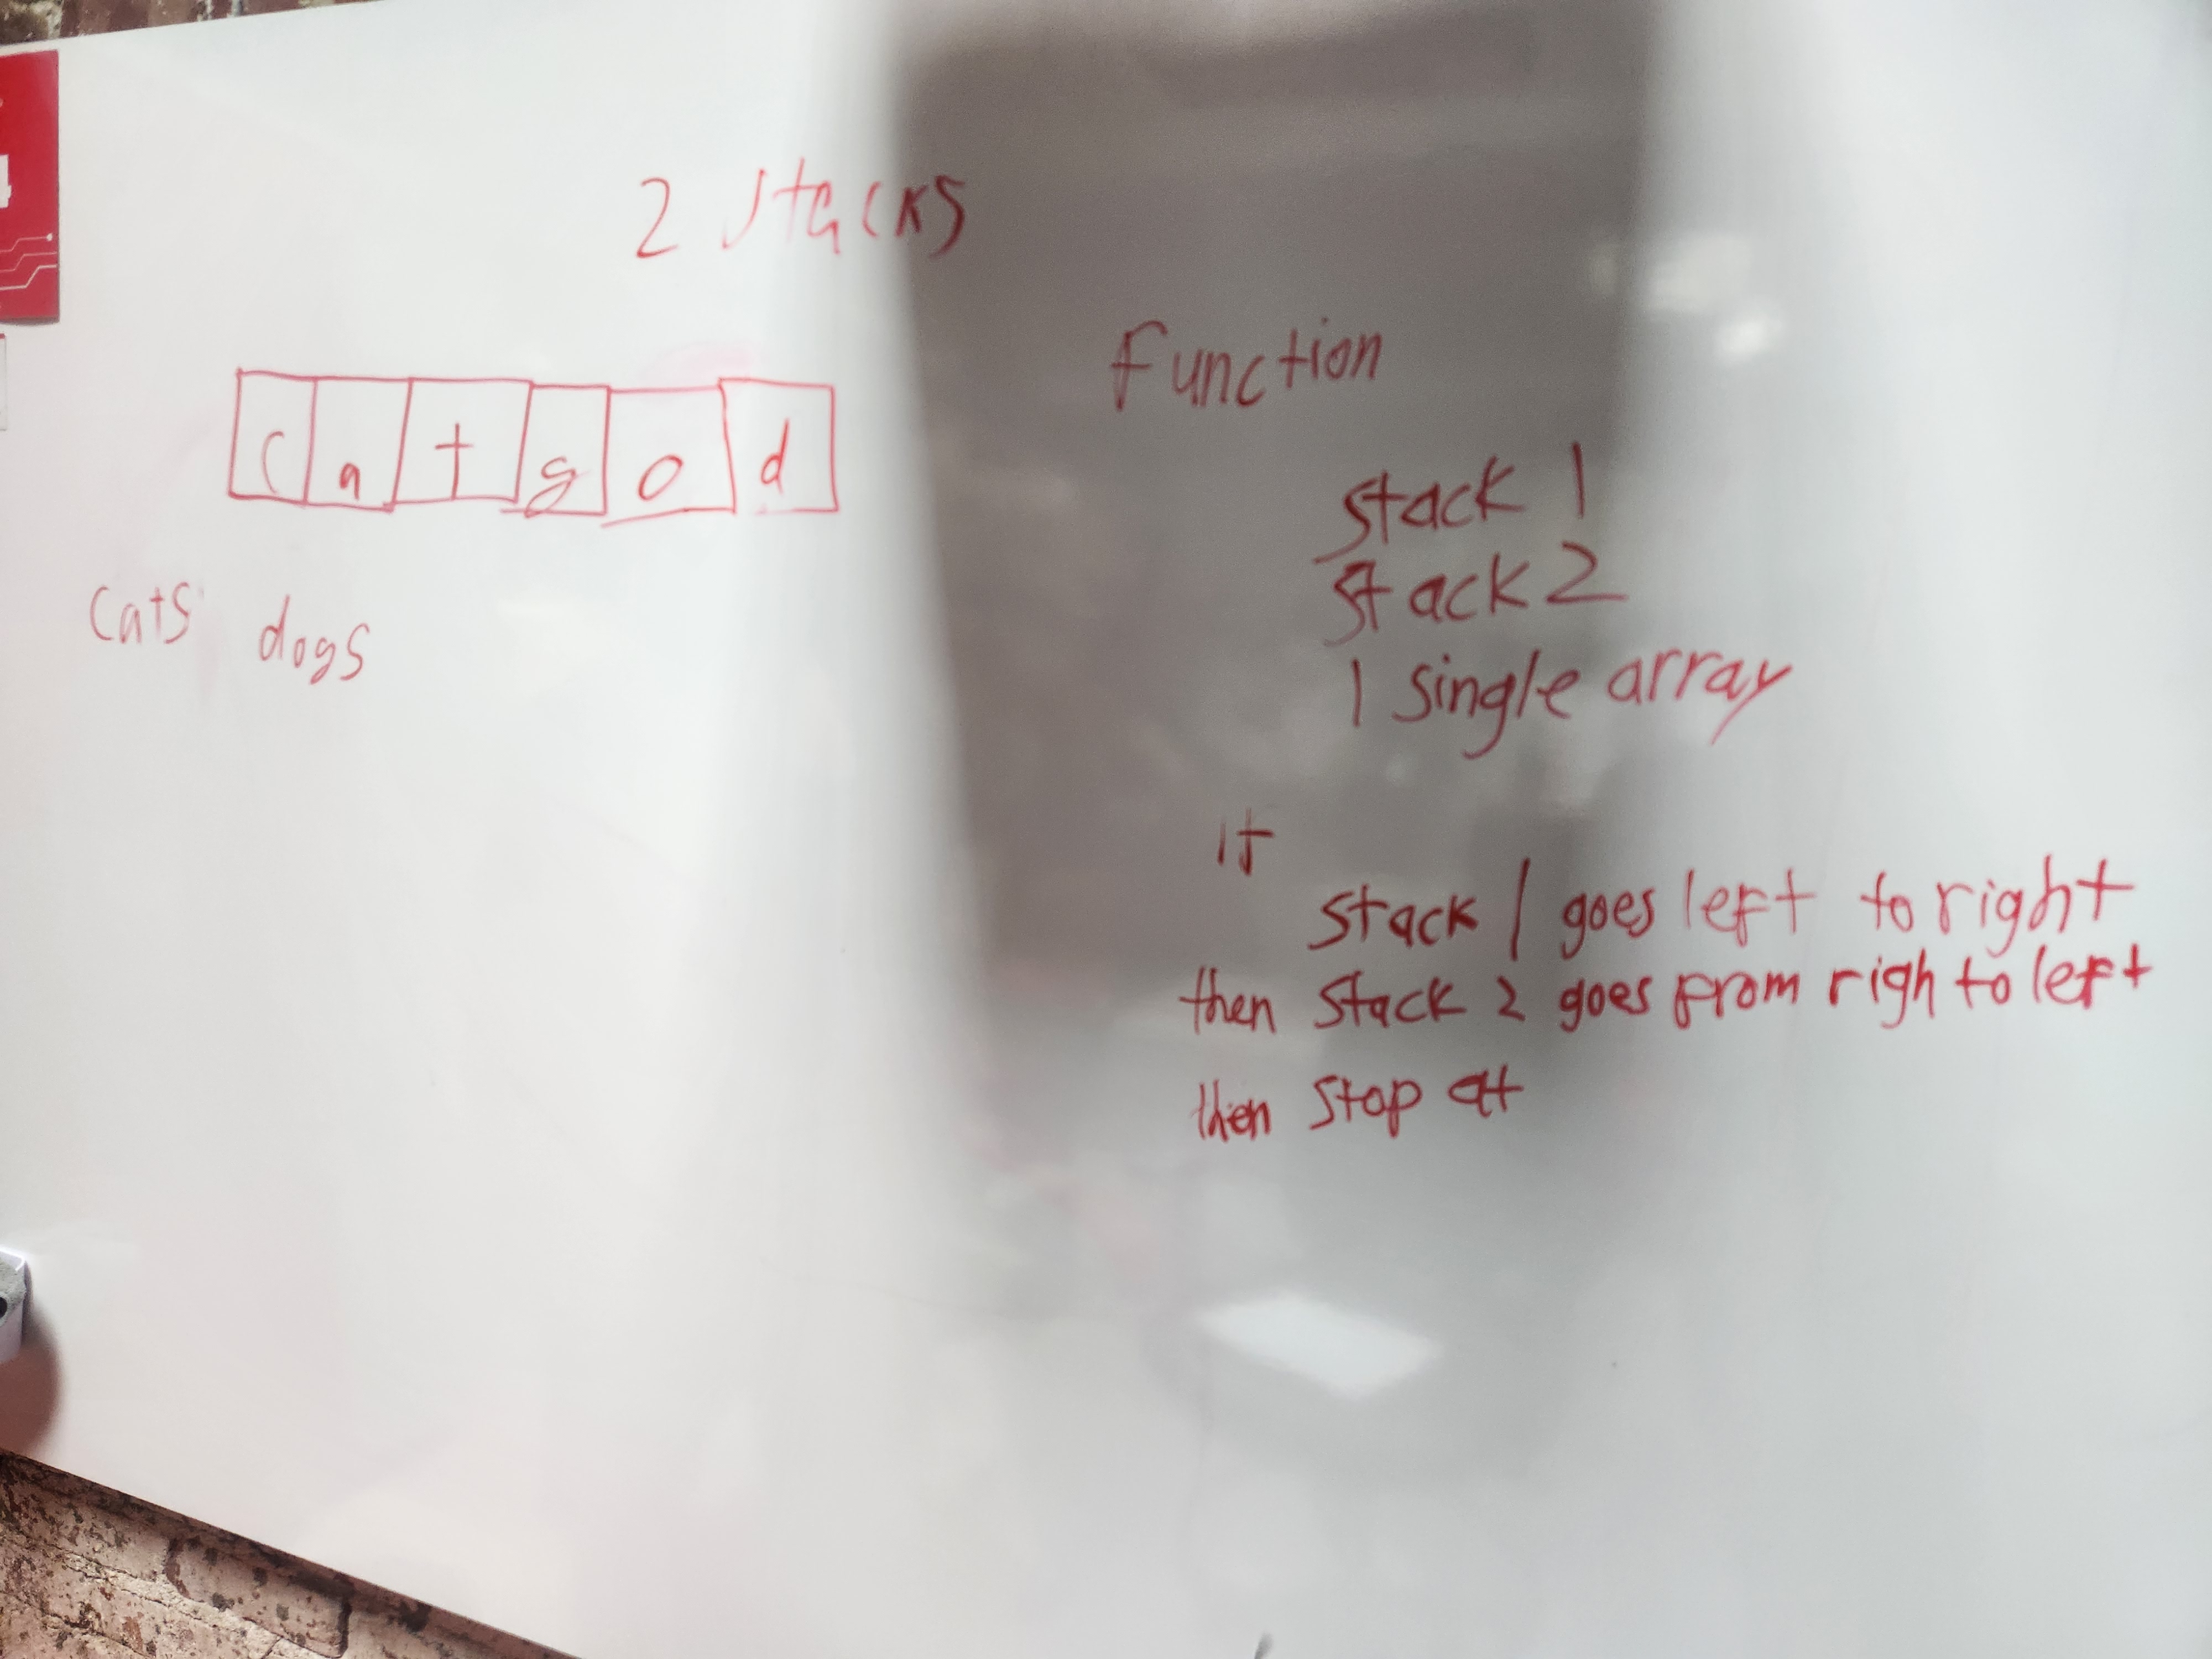 2 stacks
c a t g o d
cats dogs
function
stack 1
stack 2
1 single array
if
stack 1 goes left to right
then stack 2 goes from righ to left
then stop at
4